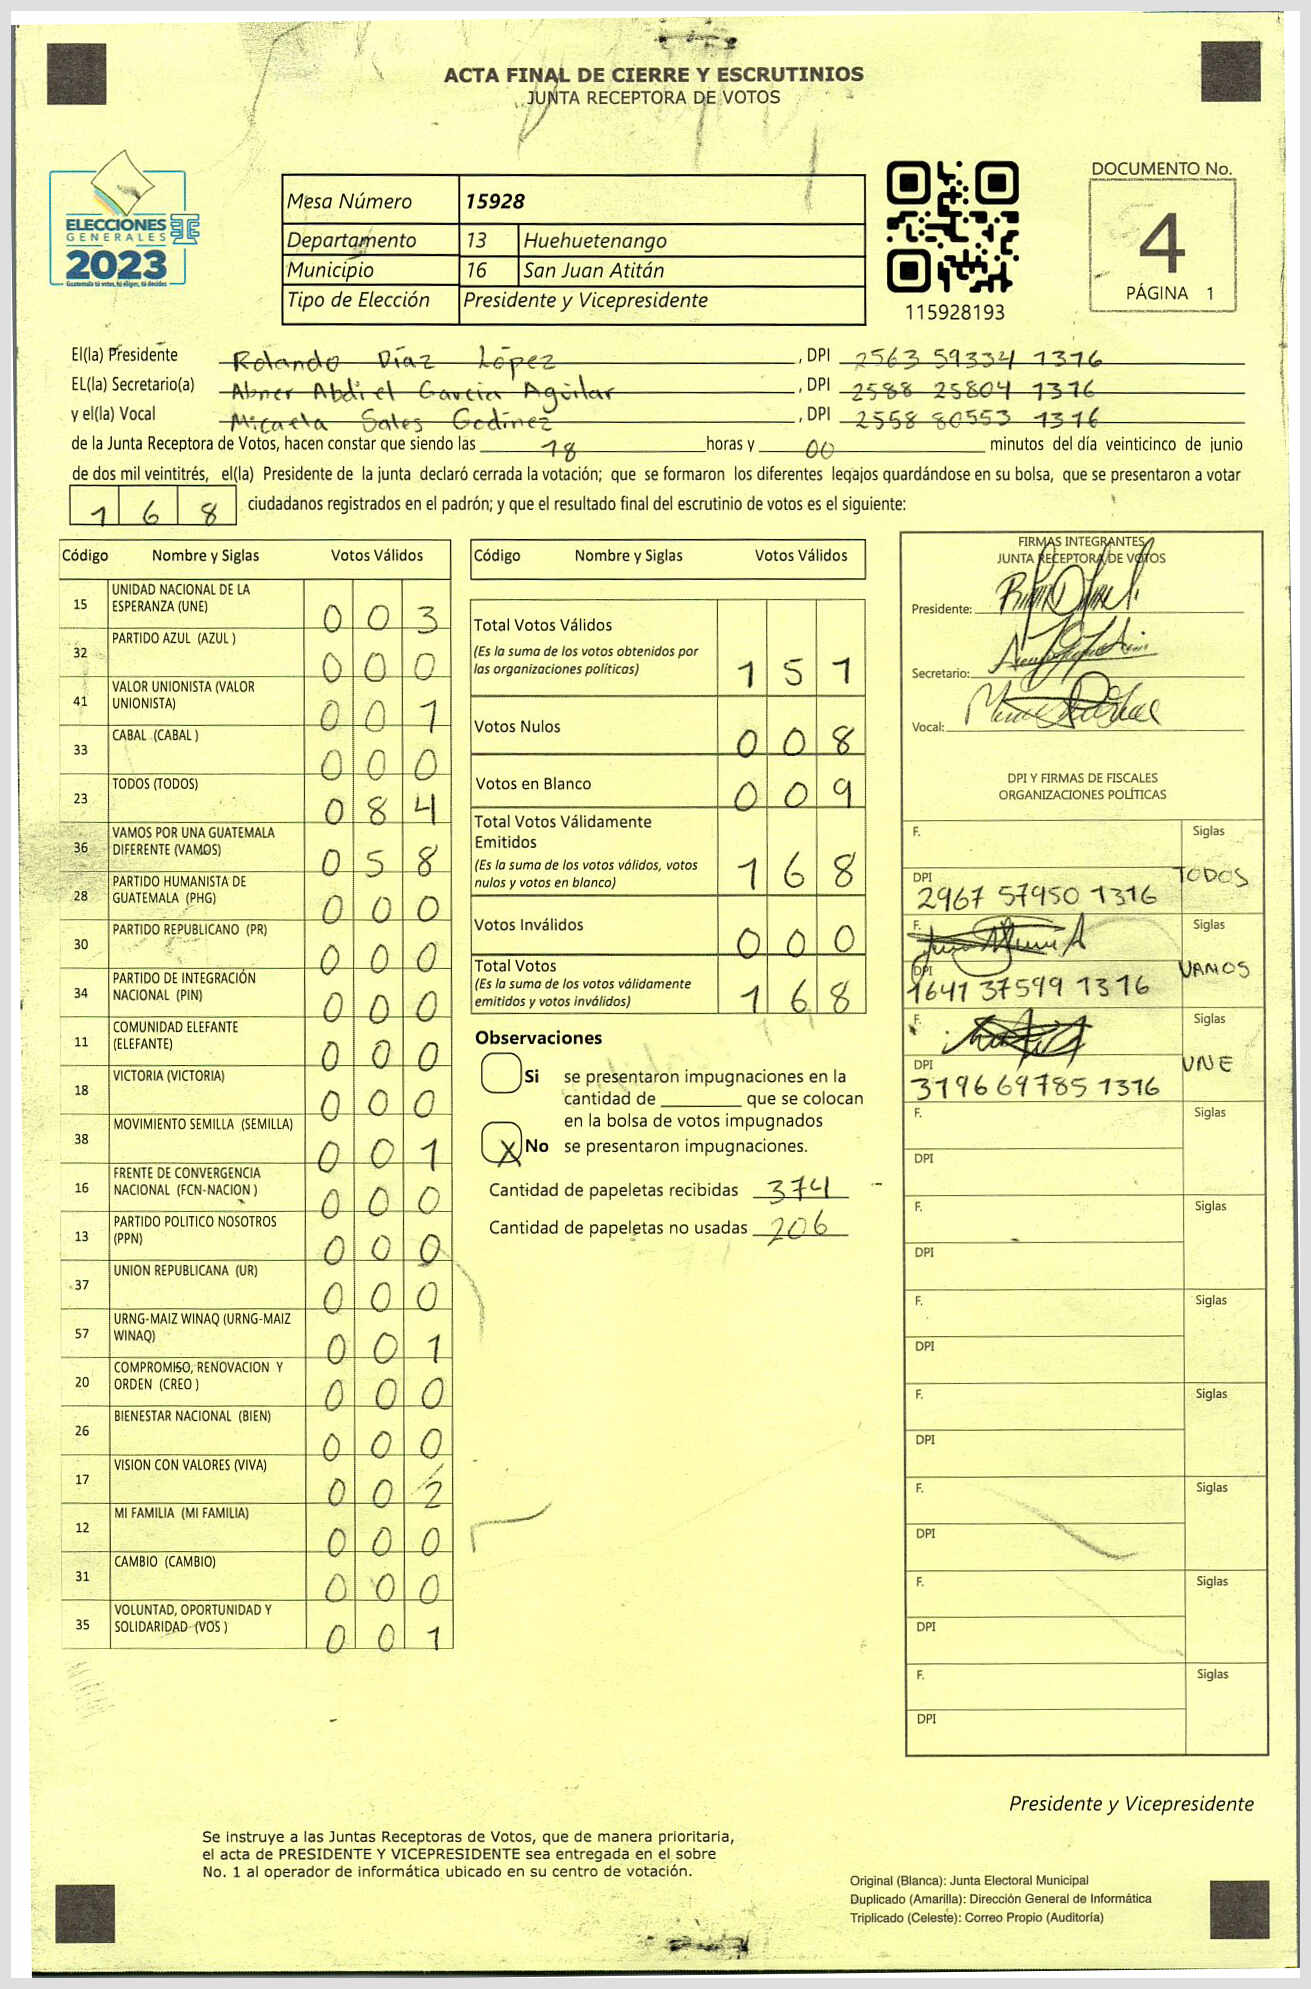 ACTA FINAL DE CIERRE Y ESCRUTINIOS
JUNTA RECEPTORA DE VOTOS
ELECCIONES
GENERALES
2023
Guatemala tú votas, tú eliges, tú decides
Mesa Número 15928
Departamento 13 Huehuetenango
Municipio 16 San Juan Atitán
Tipo de Elección Presidente y Vicepresidente
115928193
DOCUMENTO No.
4
PÁGINA 1
El(la) Presidente Rolando Díaz López, DPI 2563 59334 1316
EL(la) Secretario(a) Abner Abdiel Garcia Aguilar, DPI 2588 25804 1316
y el(la) Vocal Micaela Sales Godinez, DPI 2558 80553 1316
de la Junta Receptora de Votos, hacen constar que siendo las 18 horas y 00 minutos del día veinticinco de junio
de dos mil veintitrés, el(la) Presidente de la junta declaró cerrada la votación; que se formaron los diferentes legajos guardándose en su bolsa, que se presentaron a votar
1 6 8 ciudadanos registrados en el padrón; y que el resultado final del escrutinio de votos es el siguiente:
Código Nombre y Siglas Votos Válidos
15 UNIDAD NACIONAL DE LA
ESPERANZA (UNE) 0 0 3
32 PARTIDO AZUL (AZUL ) 0 0 0
41 VALOR UNIONISTA (VALOR
UNIONISTA) 0 0 1
33 CABAL (CABAL ) 0 0 0
23 TODOS (TODOS) 0 8 4
36 VAMOS POR UNA GUATEMALA
DIFERENTE (VAMOS) 0 5 8
28 PARTIDO HUMANISTA DE
GUATEMALA (PHG) 0 0 0
30 PARTIDO REPUBLICANO (PR) 0 0 0
34 PARTIDO DE INTEGRACIÓN
NACIONAL (PIN) 0 0 0
11 COMUNIDAD ELEFANTE
(ELEFANTE) 0 0 0
18 VICTORIA (VICTORIA) 0 0 0
38 MOVIMIENTO SEMILLA (SEMILLA) 0 0 1
16 FRENTE DE CONVERGENCIA
NACIONAL (FCN-NACION ) 0 0 0
13 PARTIDO POLITICO NOSOTROS
(PPN) 0 0 0
37 UNION REPUBLICANA (UR) 0 0 0
57 URNG-MAIZ WINAQ (URNG-MAIZ
WINAQ) 0 0 1
20 COMPROMISO, RENOVACION Y
ORDEN (CREO ) 0 0 0
26 BIENESTAR NACIONAL (BIEN) 0 0 0
17 VISION CON VALORES (VIVA) 0 0 2
12 MI FAMILIA (MI FAMILIA) 0 0 0
31 CAMBIO (CAMBIO) 0 0 0
35 VOLUNTAD, OPORTUNIDAD Y
SOLIDARIDAD (VOS ) 0 0 1
Código Nombre y Siglas Votos Válidos
Total Votos Válidos
(Es la suma de los votos obtenidos por
las organizaciones políticas) 1 5 1
Votos Nulos 0 0 8
Votos en Blanco 0 0 9
Total Votos Válidamente
Emitidos
(Es la suma de los votos válidos, votos
nulos y votos en blanco) 1 6 8
Votos Inválidos 0 0 0
Total Votos
(Es la suma de los votos válidamente
emitidos y votos inválidos) 1 6 8
Observaciones
Si se presentaron impugnaciones en la
cantidad de ________ que se colocan
en la bolsa de votos impugnados
X No se presentaron impugnaciones.
Cantidad de papeletas recibidas 374
Cantidad de papeletas no usadas 206
FIRMAS INTEGRANTES
JUNTA RECEPTORA DE VOTOS
Presidente:
Secretario:
Vocal:
DPI Y FIRMAS DE FISCALES
ORGANIZACIONES POLÍTICAS
F. Siglas
DPI TODOS
2967 57950 1316
F. Siglas
DPI VAMOS
1641 37599 1316
F. Siglas
DPI UNE
3196 69785 1316
F. Siglas
DPI
F. Siglas
DPI
F. Siglas
DPI
F. Siglas
DPI
F. Siglas
DPI
F. Siglas
DPI
F. Siglas
DPI
Presidente y Vicepresidente
Se instruye a las Juntas Receptoras de Votos, que de manera prioritaria,
el acta de PRESIDENTE Y VICEPRESIDENTE sea entregada en el sobre
No. 1 al operador de informática ubicado en su centro de votación.
Original (Blanca): Junta Electoral Municipal
Duplicado (Amarilla): Dirección General de Informática
Triplicado (Celeste): Correo Propio (Auditoría)